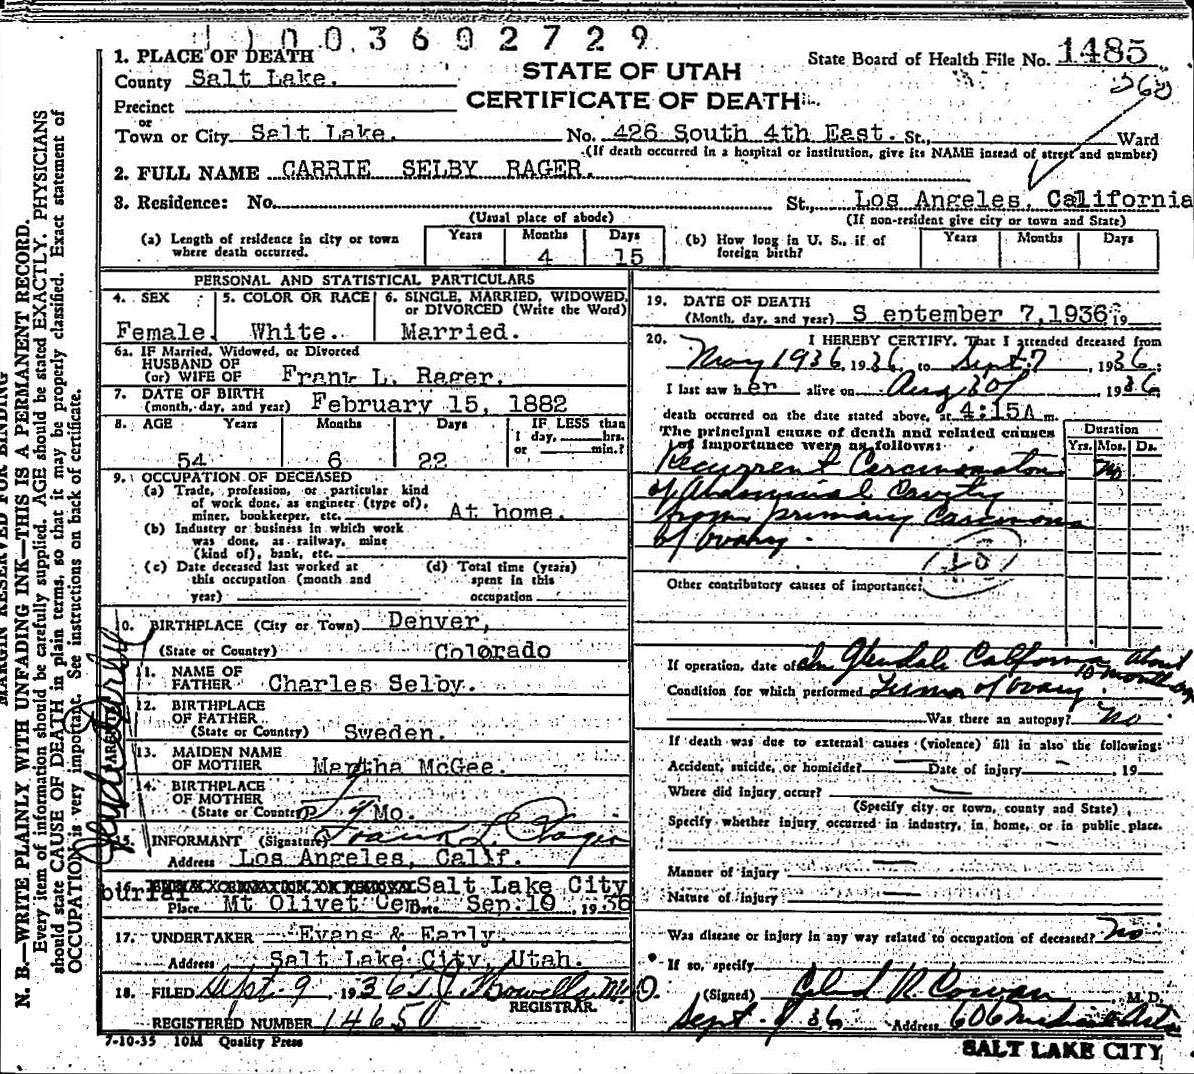 1 1 0 0 3 6 0 2 7 2 9
1. PLACE OF DEATH
County Salt Lake.
State Board of Health File No. 1485
STATE OF UTAH
CERTIFICATE OF DEATH
Precinct
or
Town or City Salt Lake. No. 426 South 4th East. St., Ward
(If death occurred in a hospital or institution, give its NAME instead of street and number)
2. FULL NAME CARRIE SELBY RAGER.
3. Residence: No. St., Los Angeles, California
(Usual place of abode) (If non-resident give city or town and State)
(a) Length of residence in city or town where death occurred. Years Months 4 Days 15
(b) How long in U. S., if of foreign birth? Years Months Days
PERSONAL AND STATISTICAL PARTICULARS
4. SEX Female.
5. COLOR OR RACE White.
6. SINGLE, MARRIED, WIDOWED, or DIVORCED (Write the Word) Married.
6a. IF Married, Widowed, or Divorced
HUSBAND OF
(or) WIFE OF Frank L. Rager.
7. DATE OF BIRTH
(month, day, and year) February 15, 1882
8. AGE Years 54 Months 6 Days 22
IF LESS than 1 day, hrs. or min.?
9. OCCUPATION OF DECEASED
(a) Trade, profession, or particular kind
of work done, as engineer (type of),
miner, bookkeeper, etc. At home.
(b) Industry or business in which work
was done, as railway, mine
(kind of), bank, etc.
(c) Date deceased last worked at
this occupation (month and
year)
(d) Total time (years)
spent in this
occupation
10. BIRTHPLACE (City or Town) Denver,
(State or Country) Colorado
PARENTS
11. NAME OF
FATHER Charles Selby.
12. BIRTHPLACE
OF FATHER
(State or Country) Sweden.
13. MAIDEN NAME
OF MOTHER Martha McGee.
14. BIRTHPLACE
OF MOTHER
(State or Country) Mo.
15. INFORMANT (Signature) Frank L. Rager
Address Los Angeles, Calif.
16. BURIAL, CREMATION OR REMOVAL Salt Lake City
burial
Place Mt Olivet Cem Date Sep. 10, 1936
17. UNDERTAKER Evans & Early.
Address Salt Lake City, Utah.
18. FILED Sept. 9, 1936 T. J. Howells M.D.
REGISTRAR.
REGISTERED NUMBER 1465
7-10-35 10M Quality Press
19. DATE OF DEATH
(Month, day, and year) September 7, 1936 19
20. I HEREBY CERTIFY, That I attended deceased from
May 1936, 1936, to Sept 7, 1936.
I last saw her alive on Aug 30, 1936
death occurred on the date stated above, at 4:15A m.
The principal cause of death and related causes
of importance were as follows:
Duration
Yrs. Mos. Ds.
Recurrent Carcinomatosis
of Abdominal Cavity
from primary Carcinoma
of Ovary.
10
Other contributory causes of importance:
If operation, date of In Glendale California about
10 months ago
Condition for which performed Tumor of Ovary
Was there an autopsy? No
If death was due to external causes (violence) fill in also the following:
Accident, suicide, or homicide? Date of injury , 19
Where did injury occur?
(Specify city or town, county and State)
Specify whether injury occurred in industry, in home, or in public place.
Manner of injury
Nature of injury
Was disease or injury in any way related to occupation of deceased? No
If so, specify
(Signed) Leland R. Cowan, M.D.
Sept. 9 36 Address 606 Medical Arts
SALT LAKE CITY
MARGIN RESERVED FOR BINDING
N. B.—WRITE PLAINLY WITH UNFADING INK—THIS IS A PERMANENT RECORD.
Every item of information should be carefully supplied. AGE should be stated EXACTLY. PHYSICIANS
should state CAUSE OF DEATH in plain terms, so that it may be properly classified. Exact statement of
OCCUPATION is very important. See instructions on back of certificate.